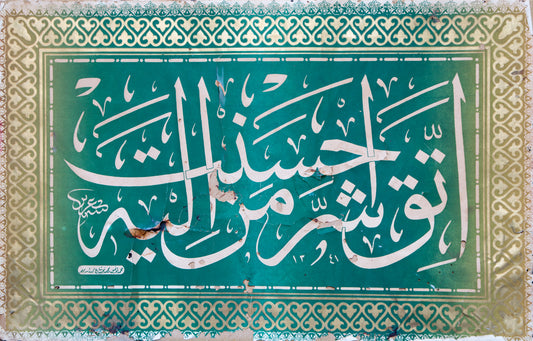 اتق شر من احسنت اليه
١٣٤١